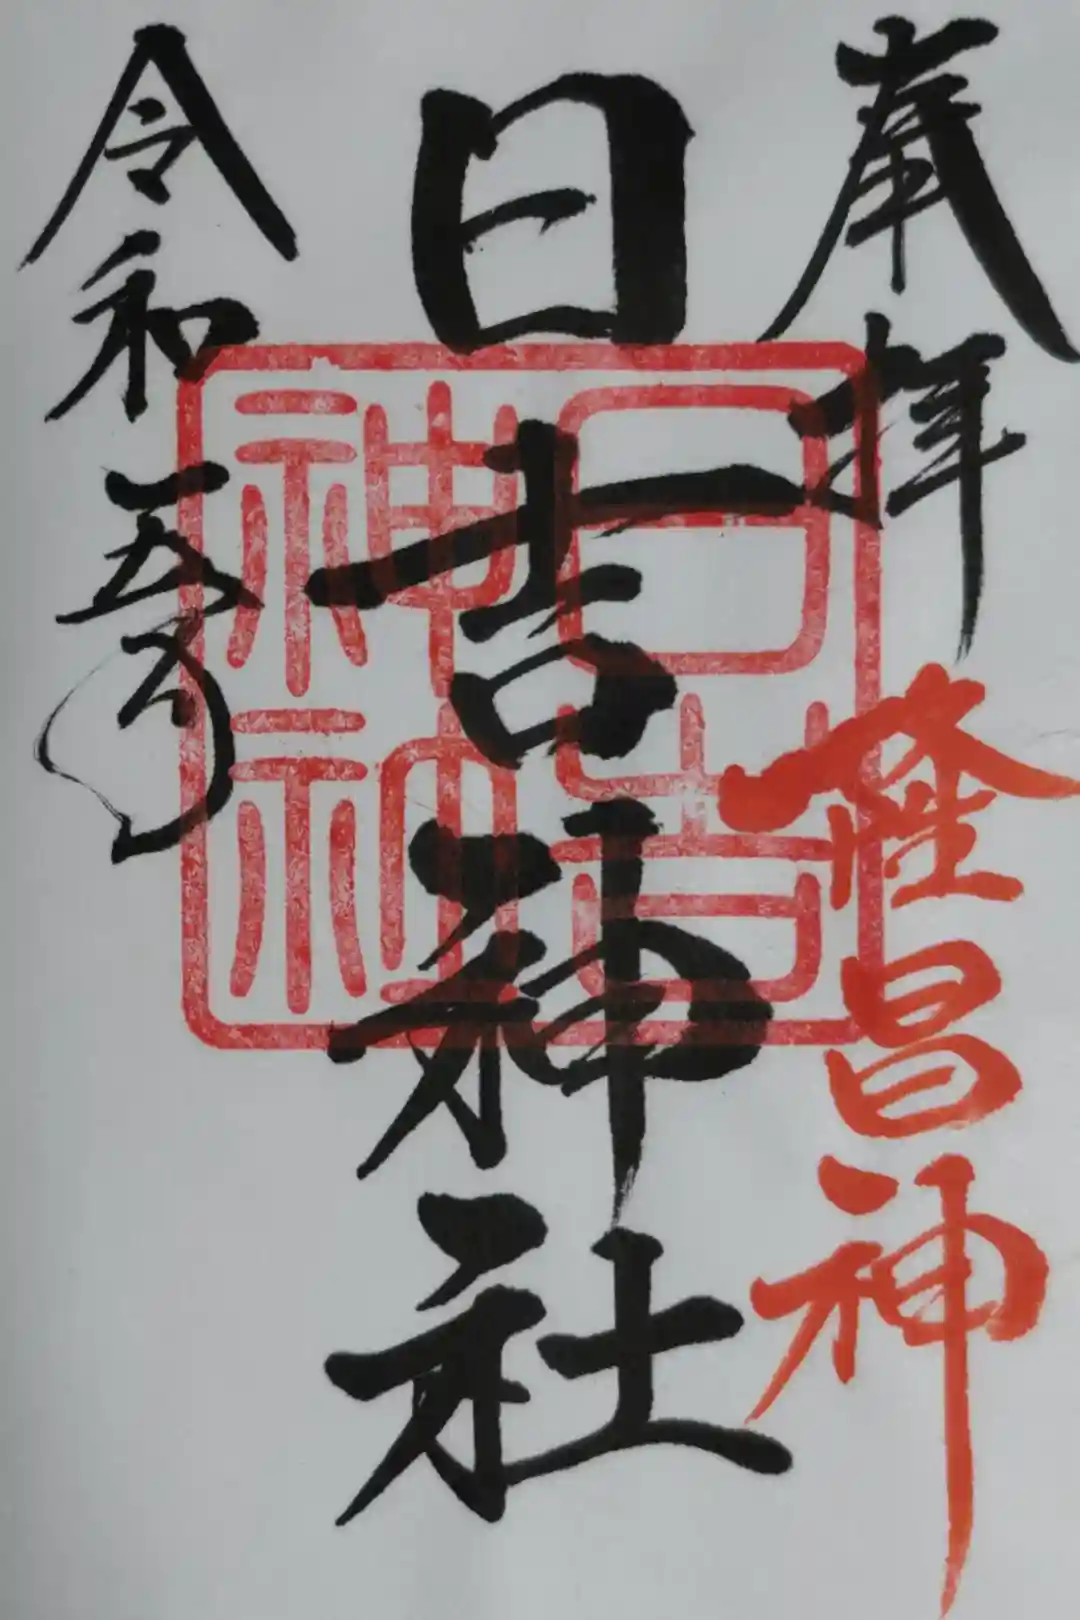 奉拝
隆昌神
日吉神社
令和五
日吉
神社